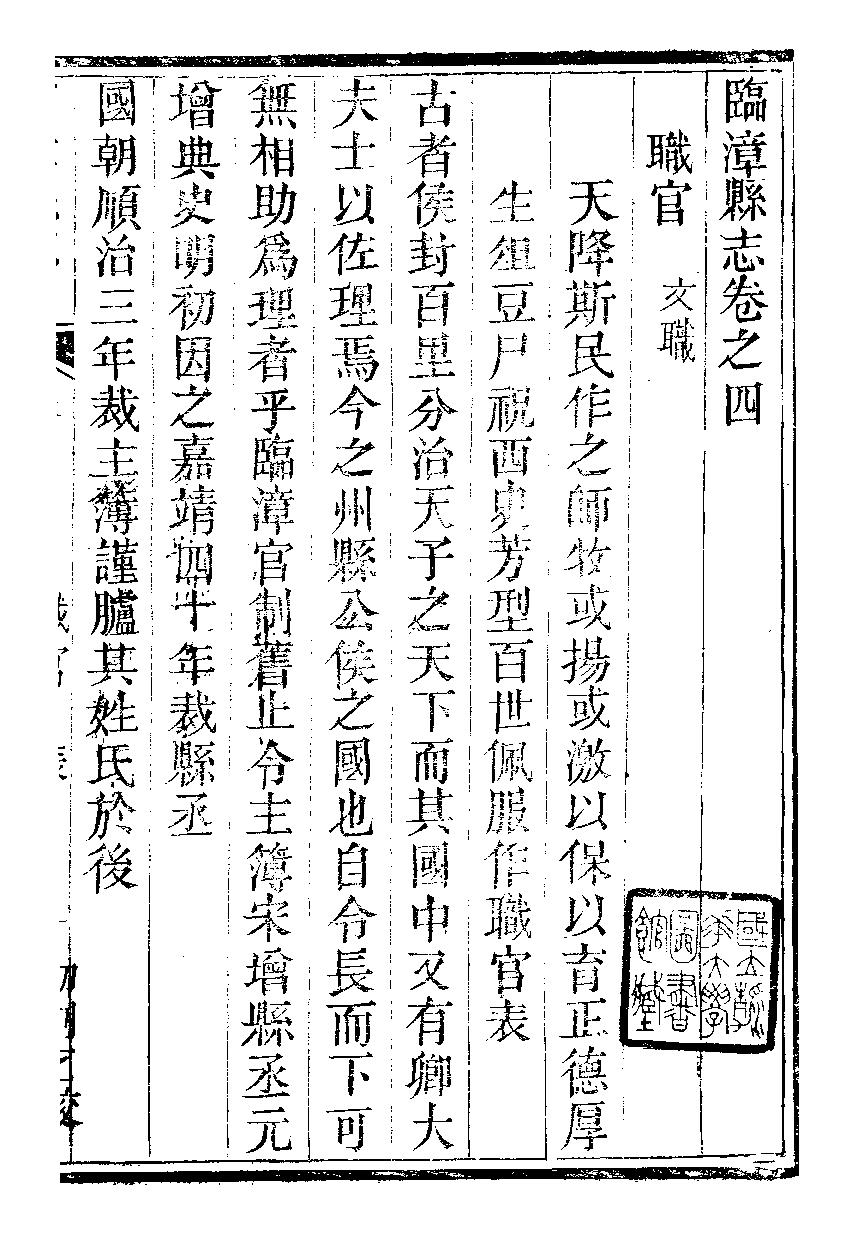 臨漳縣志卷之四
職官 文職
天降斯民作之師牧或揚或激以保以育正德厚
生俎豆尸祝西史芳型百世佩服作職官表
古者侯封百里分治天子之天下而其國中又有卿大
夫士以佐理焉今之州縣公侯之國也自令長而下可
無相助爲理者乎臨漳官制舊止令主簿宋增縣丞元
增典史明初因之嘉靖四十年裁縣丞
國朝順治三年裁主簿謹臚其姓氏於後